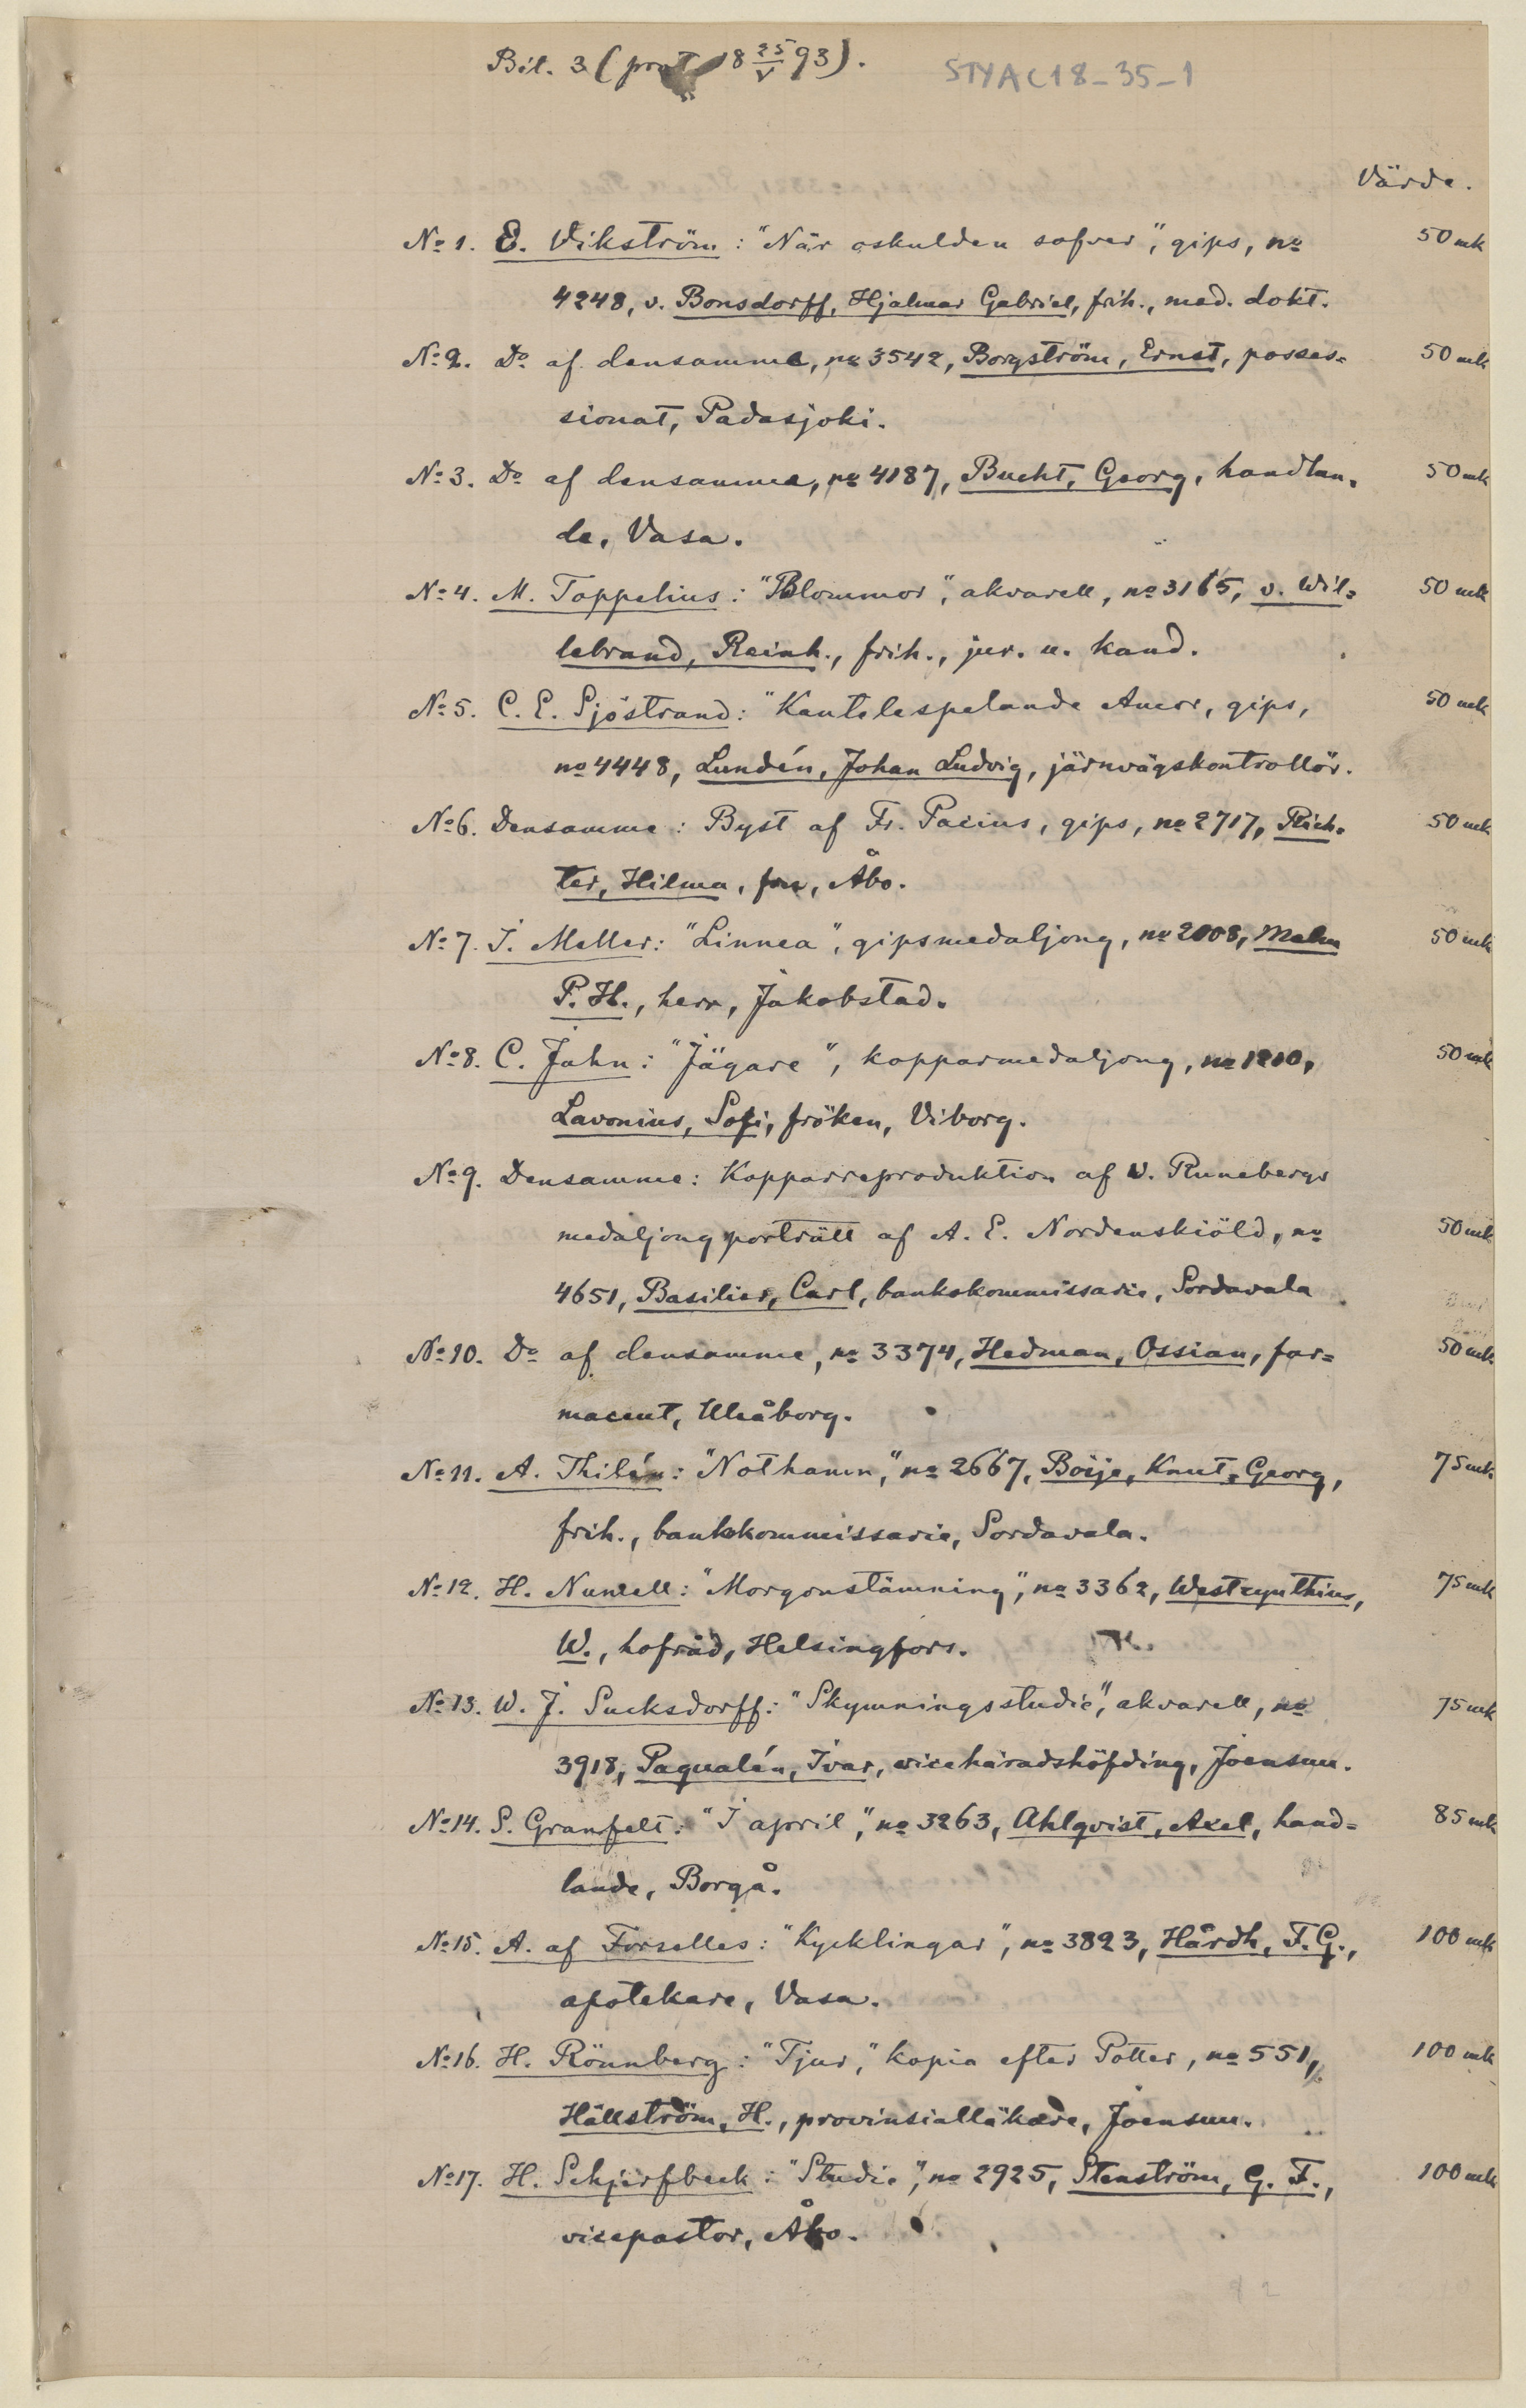 Bil. 3 (prot 18 25/V 93).
STYA C18-35-1
Värde.
No 1. E. Vikström: "När oskulden sofver", gips, no 50 mk
4248, v. Bonsdorff, Hjalmar Gabriel, frih., med. dokt.
No 2. Do af densamme, no 3542, Borgström, Ernst, posses= 50 mk
sionat, Padasjoki.
No 3. Do af densamme, no 4187, Bucht, Georg, handlan= 50 mk
de, Vasa.
No 4. M. Toppelius: "Blommor", akvarell, no 3165, v. Wil= 50 mk
lebrand, Reinh., frih., jur. u. kand.
No 5. C. E. Sjöstrand: "Kantelespelande Amor, gips, 50 mk
no 4448, Lundén, Johan Ludvig, järnvägskontrollör.
No 6. Densamme: Byst af Fr. Pacius, gips, no 2717, Rich= 50 mk
ter, Hilma, fru, Åbo.
No 7. I. Meller: "Linnea", gipsmedaljong, no 2008, Malm 50 mk
P. H., herr, Jakobstad.
No 8. C. Jahn: "Jägare", kopparmedaljong, no 1210, 50 mk
Lavonius, Sofi, fröken, Viborg.
No 9. Densamme: Kopparreproduktion af W. Runebergs
medaljongporträtt af A. E. Nordenskiöld, no 50 mk
4651, Basilier, Carl, bankskommissarie, Sordavala
No 10. Do af densamme, no 3374, Hedman, Ossian, far= 50 mk
maceut, Uleåborg.
No 11. A. Thilén: "Nothamn", no 2667, Böije, Knut Georg, 75 mk
frih., bankkommissarie, Sordavala.
No 12. H. Munsell: "Morgonstämning", no 3362, Westzynthius, 75 mk
W., hofråd, Helsingfors.
No 13. W. J. Sucksdorff: "Skymningsstudie", akvarell, no 75 mk
3918, Paqualén, Ivar, vicehäradshöfding, Joensuu.
No 14. S. Granfelt: "I april", no 3263, Ahlqvist, Axel, hand= 85 mk
lande, Borgå.
No 15. A. af Forselles: "Kycklingar", no 3823, Hårdh, F. G., 100 mk
apotekare, Vasa.
No 16. H. Rönnberg: "Tjur", kopia efter Potter, no 551, 100 mk
Hällström, H., provinsialläkare, Joensuu.
No 17. H. Schjerfbeck: "Studie", no 2925, Stenström, G. F., 100 mk
vicepastor, Åbo.